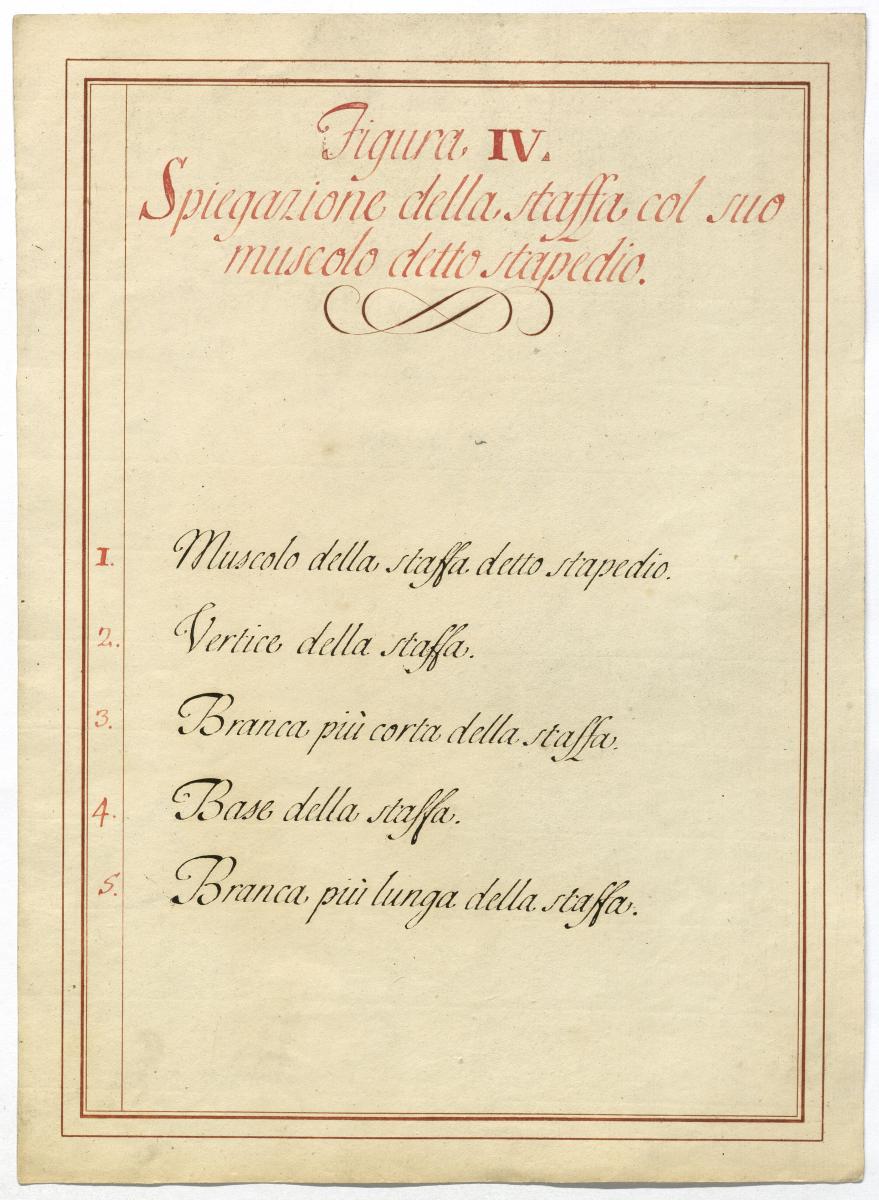 Figura IV.
Spiegazione della staffa col suo
muscolo detto stapedio.
1. Muscolo della staffa detto stapedio.
2. Vertice della staffa.
3. Branca più corta della staffa.
4. Base della staffa.
5. Branca più lunga della staffa.